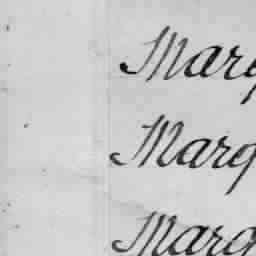 Marg
Marg
Marg